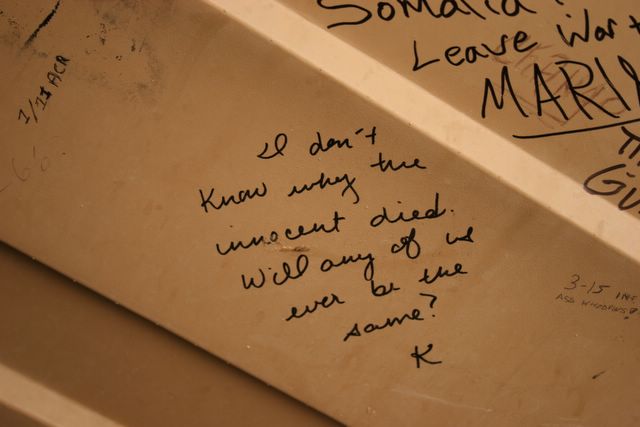 Somalia
Leave War
MARI
Gu
1/11 ACR
I don't
Know why the
innocent died.
Will any of us
ever be the
same?
K
3-15 INF